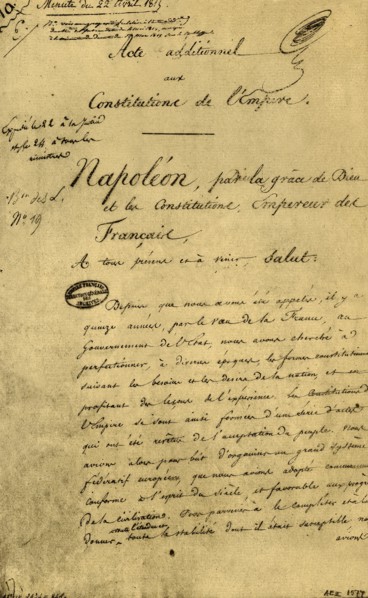 Minute du 22 Avril 1815
Acte additionnel
aux
Constitutions de l'Empire.
Expédié le 22 à la
et le 24 à tous les
ministres
Bin des L.
No. 19
Napoléon, par la grâce de Dieu
et les Constitutions, Empereur des
Français,
A tous présens et à venir, Salut:
Depuis que nous avons été appelés, il y a
quinze années, par le vœu de la France, au
Gouvernement de l'Etat, nous avons cherché à
perfectionner, à diverses époques, les formes constitutionn
suivant les besoins et les desirs de la nation, et en
profitant des leçons de l'expérience. Les Constitutions de
l'Empire se sont ainsi formées d'une série d'actes
qui ont été revêtus de l'acceptation du peuple. Nous
avions alors pour but d'organiser un grand système
fédératif européen, que nous avions adopté comme
conforme à l'esprit du siècle, et favorable aux progrès
de la civilisation. Pour parvenir à le completter et à lui
donner toute l'étendue et toute la stabilité dont il était susceptible, no
avions
AEII 1577